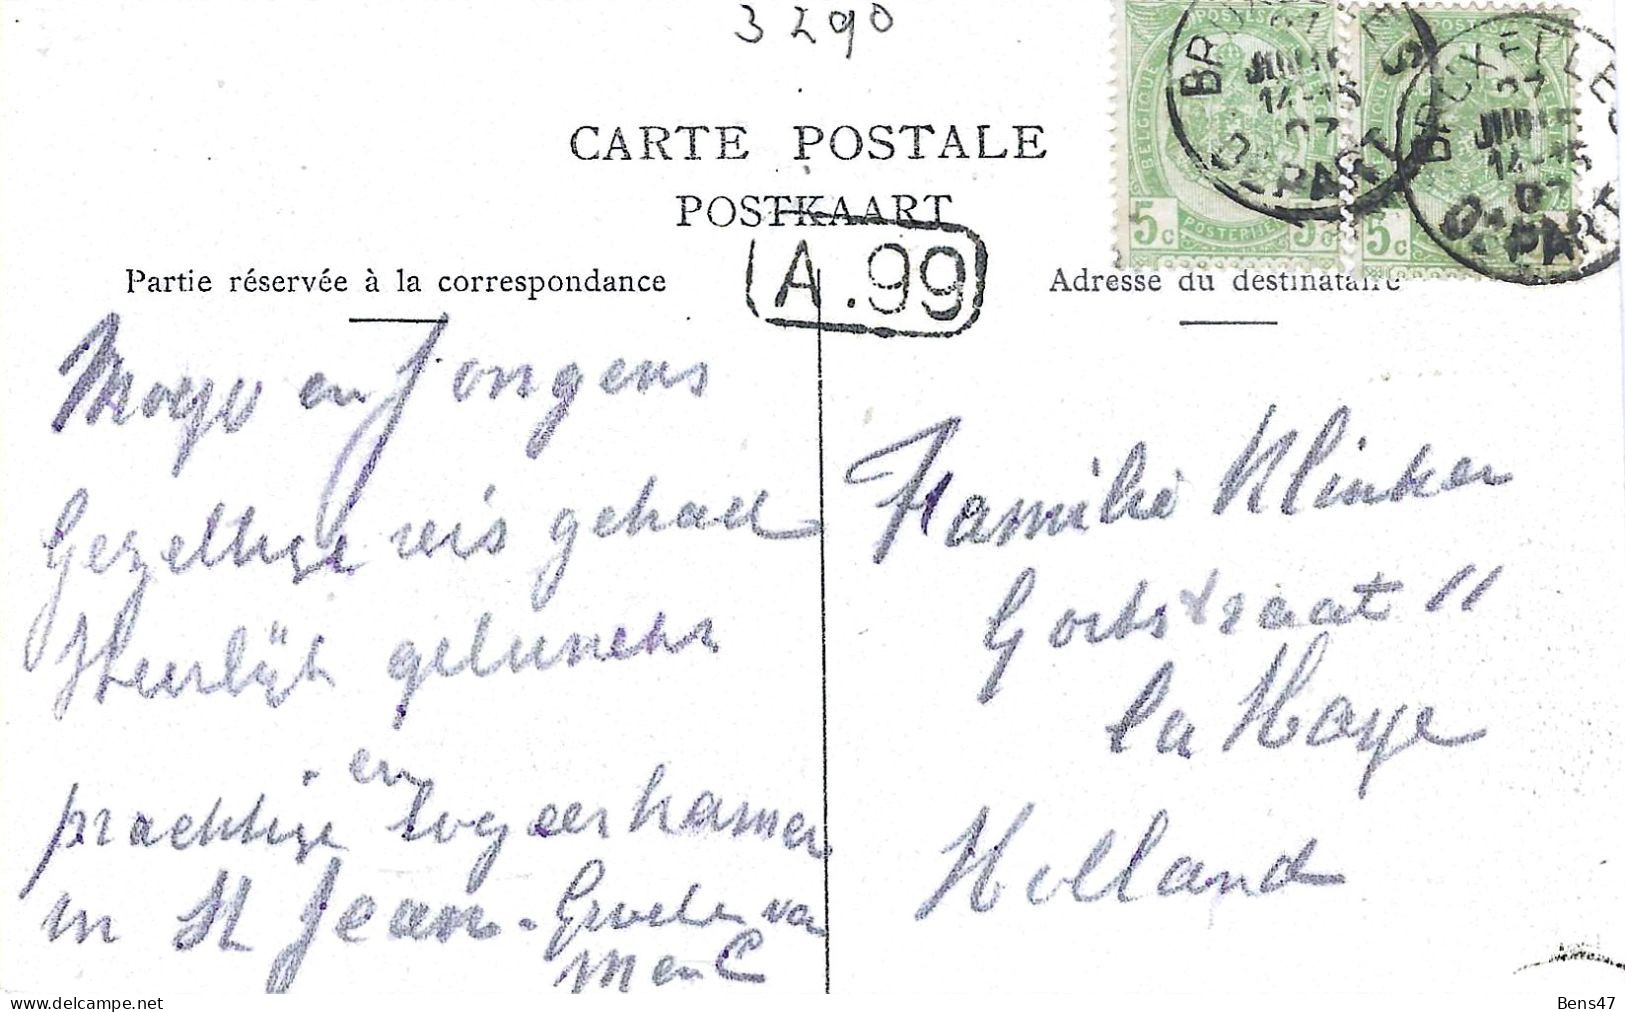 3290
CARTE POSTALE
POSTKAART
A.99
BRUXELLES
JUIL
14-15
07
DEPART
BRUXELLES
JUIL
14-15
07
DEPART
BELGIQUE
5c
POSTERIJEN
5c
5c
Partie réservée à la correspondance
Adresse du destinataire
en Jongens
Gezellige reis gehad
Heerlijk geluncht
en
prachtige logeerkamer
in St Jean - Groeten van
M en C
Familie Klinker
straat 11
La Haye
Holland
Bens47